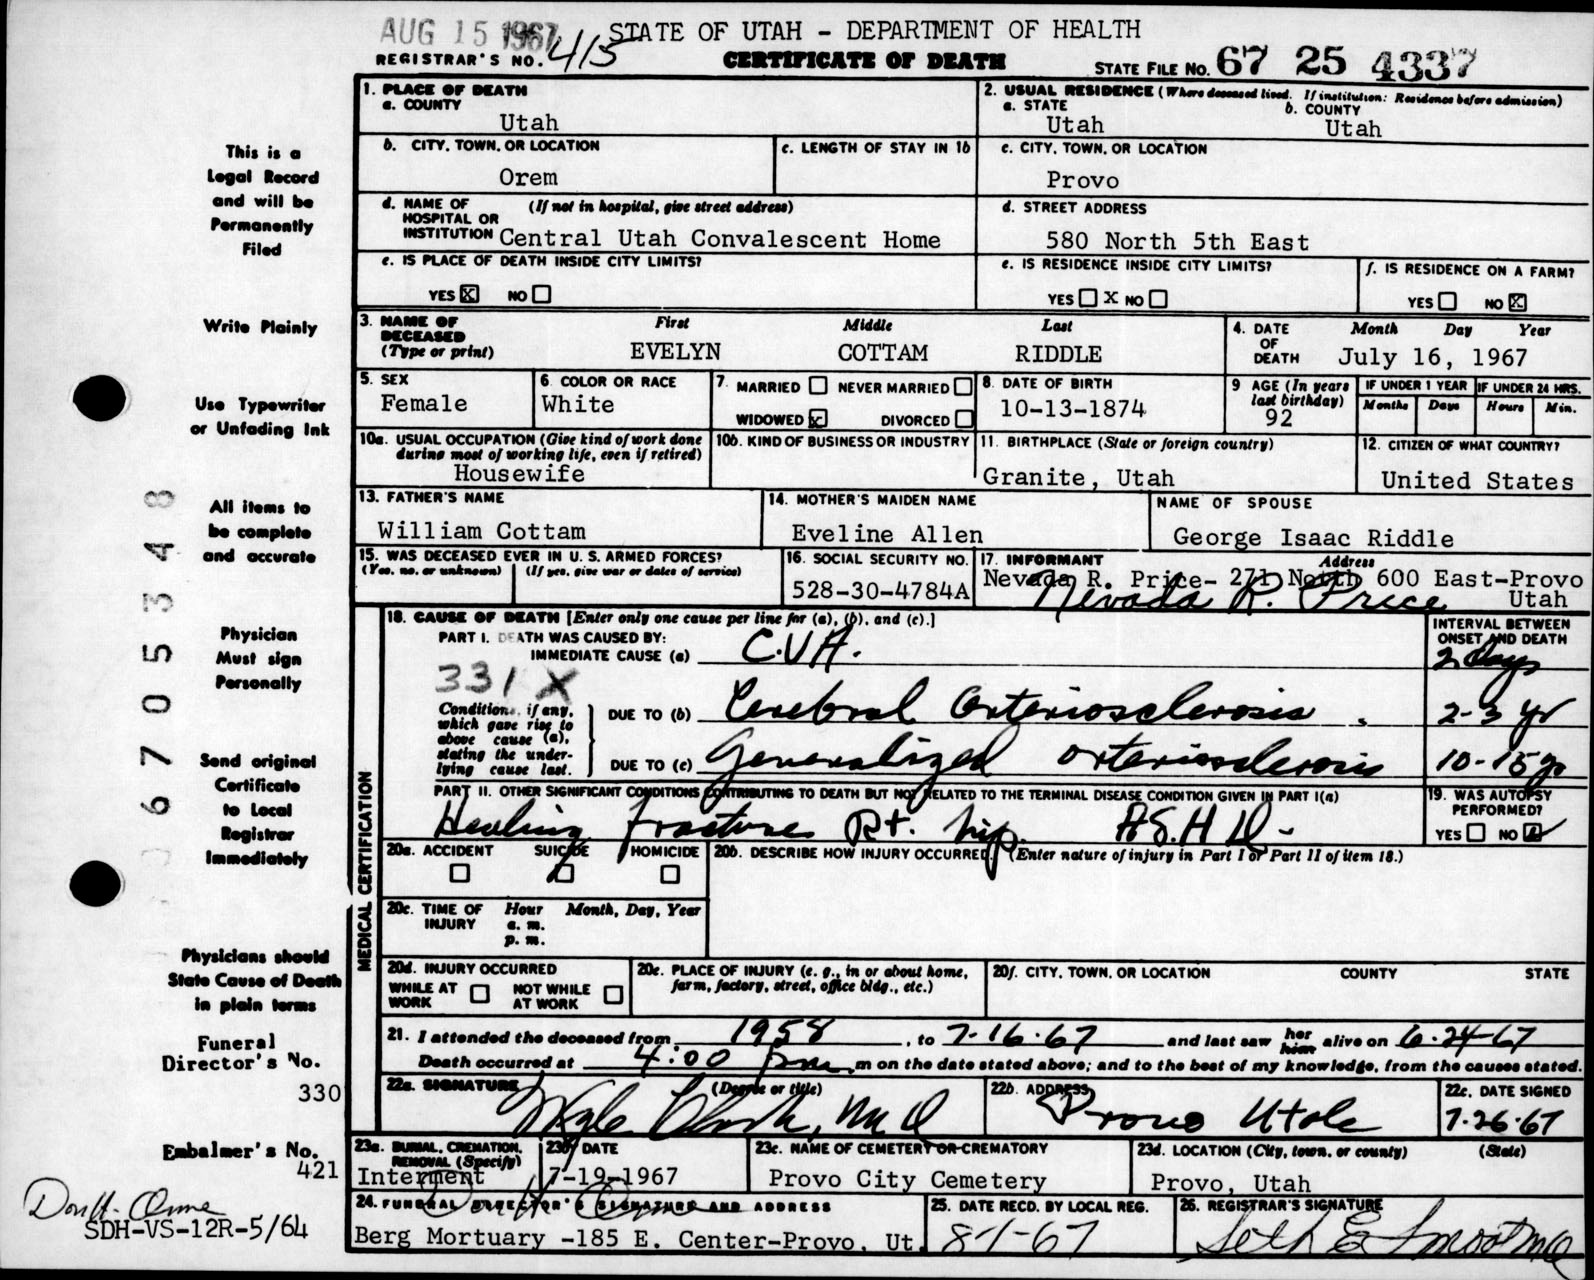 AUG 15 1967 STATE OF UTAH - DEPARTMENT OF HEALTH
REGISTRAR'S NO. 415 CERTIFICATE OF DEATH STATE FILE NO. 67 25 4337
This is a Legal Record and will be Permanently Filed
Write Plainly
Use Typewriter or Unfading Ink
All items to be complete and accurate
Physician Must sign Personally
Send original Certificate to Local Registrar Immediately
Physicians should State Cause of Death in plain terms
Funeral Director's No. 330
Embalmer's No. 421
Don H. Orme
SDH-VS-12R-5/64
67 05348
1. PLACE OF DEATH
a. COUNTY
Utah
2. USUAL RESIDENCE (Where deceased lived. If institution: Residence before admission)
a. STATE b. COUNTY
Utah Utah
b. CITY, TOWN, OR LOCATION
Orem
c. LENGTH OF STAY IN 1b
c. CITY, TOWN, OR LOCATION
Provo
d. NAME OF HOSPITAL OR INSTITUTION (If not in hospital, give street address)
Central Utah Convalescent Home
d. STREET ADDRESS
580 North 5th East
e. IS PLACE OF DEATH INSIDE CITY LIMITS?
YES X NO
e. IS RESIDENCE INSIDE CITY LIMITS?
YES X NO
f. IS RESIDENCE ON A FARM?
YES NO X
3. NAME OF DECEASED (Type or print) First Middle Last
EVELYN COTTAM RIDDLE
4. DATE OF DEATH Month Day Year
July 16, 1967
5. SEX
Female
6. COLOR OR RACE
White
7. MARRIED NEVER MARRIED
WIDOWED X DIVORCED
8. DATE OF BIRTH
10-13-1874
9 AGE (In years last birthday)
92
IF UNDER 1 YEAR IF UNDER 24 HRS.
Months Days Hours Min.
10a. USUAL OCCUPATION (Give kind of work done during most of working life, even if retired)
Housewife
10b. KIND OF BUSINESS OR INDUSTRY
11. BIRTHPLACE (State or foreign country)
Granite, Utah
12. CITIZEN OF WHAT COUNTRY?
United States
13. FATHER'S NAME
William Cottam
14. MOTHER'S MAIDEN NAME
Eveline Allen
NAME OF SPOUSE
George Isaac Riddle
15. WAS DECEASED EVER IN U. S. ARMED FORCES?
(Yes, no, or unknown) (If yes, give war or dates of service)
16. SOCIAL SECURITY NO.
528-30-4784A
17. INFORMANT Address
Nevada R. Price- 271 North 600 East-Provo Utah
Nevada R. Price
18. CAUSE OF DEATH [Enter only one cause per line for (a), (b), and (c).]
INTERVAL BETWEEN ONSET AND DEATH
PART I. DEATH WAS CAUSED BY:
IMMEDIATE CAUSE (a) C.V.A. 2 days
331 X
Conditions, if any, which gave rise to above cause (a), stating the underlying cause last.
DUE TO (b) Cerebral Arteriosclerosis. 2-3 yr
DUE TO (c) Generalized arteriosclerosis 10-15 yr
PART II. OTHER SIGNIFICANT CONDITIONS CONTRIBUTING TO DEATH BUT NOT RELATED TO THE TERMINAL DISEASE CONDITION GIVEN IN PART I(a)
Healing fracture Rt. hip. A.S.H.D-
19. WAS AUTOPSY PERFORMED?
YES NO
20a. ACCIDENT SUICIDE HOMICIDE
20b. DESCRIBE HOW INJURY OCCURRED. (Enter nature of injury in Part I or Part II of item 18.)
20c. TIME OF INJURY Hour a. m. p. m. Month, Day, Year
20d. INJURY OCCURRED
WHILE AT WORK NOT WHILE AT WORK
20e. PLACE OF INJURY (e. g., in or about home, farm, factory, street, office bldg., etc.)
20f. CITY, TOWN, OR LOCATION COUNTY STATE
21. I attended the deceased from 1958, to 7-16-67 and last saw her him alive on 6-24-67
Death occurred at 4:00 pm m on the date stated above; and to the best of my knowledge, from the causes stated.
22a. SIGNATURE (Degree or title)
Clark, M.D
22b. ADDRESS
Provo Utah
22c. DATE SIGNED
7-26-67
23a. BURIAL, CREMATION, REMOVAL (Specify)
Interment
23b. DATE
7-19-1967
23c. NAME OF CEMETERY OR CREMATORY
Provo City Cemetery
23d. LOCATION (City, town, or county) (State)
Provo, Utah
24. FUNERAL DIRECTOR'S SIGNATURE AND ADDRESS
Don H. Orme
Berg Mortuary -185 E. Center-Provo, Ut.
25. DATE RECD. BY LOCAL REG.
8-1-67
26. REGISTRAR'S SIGNATURE
Seth E Smoot MD
MEDICAL CERTIFICATION